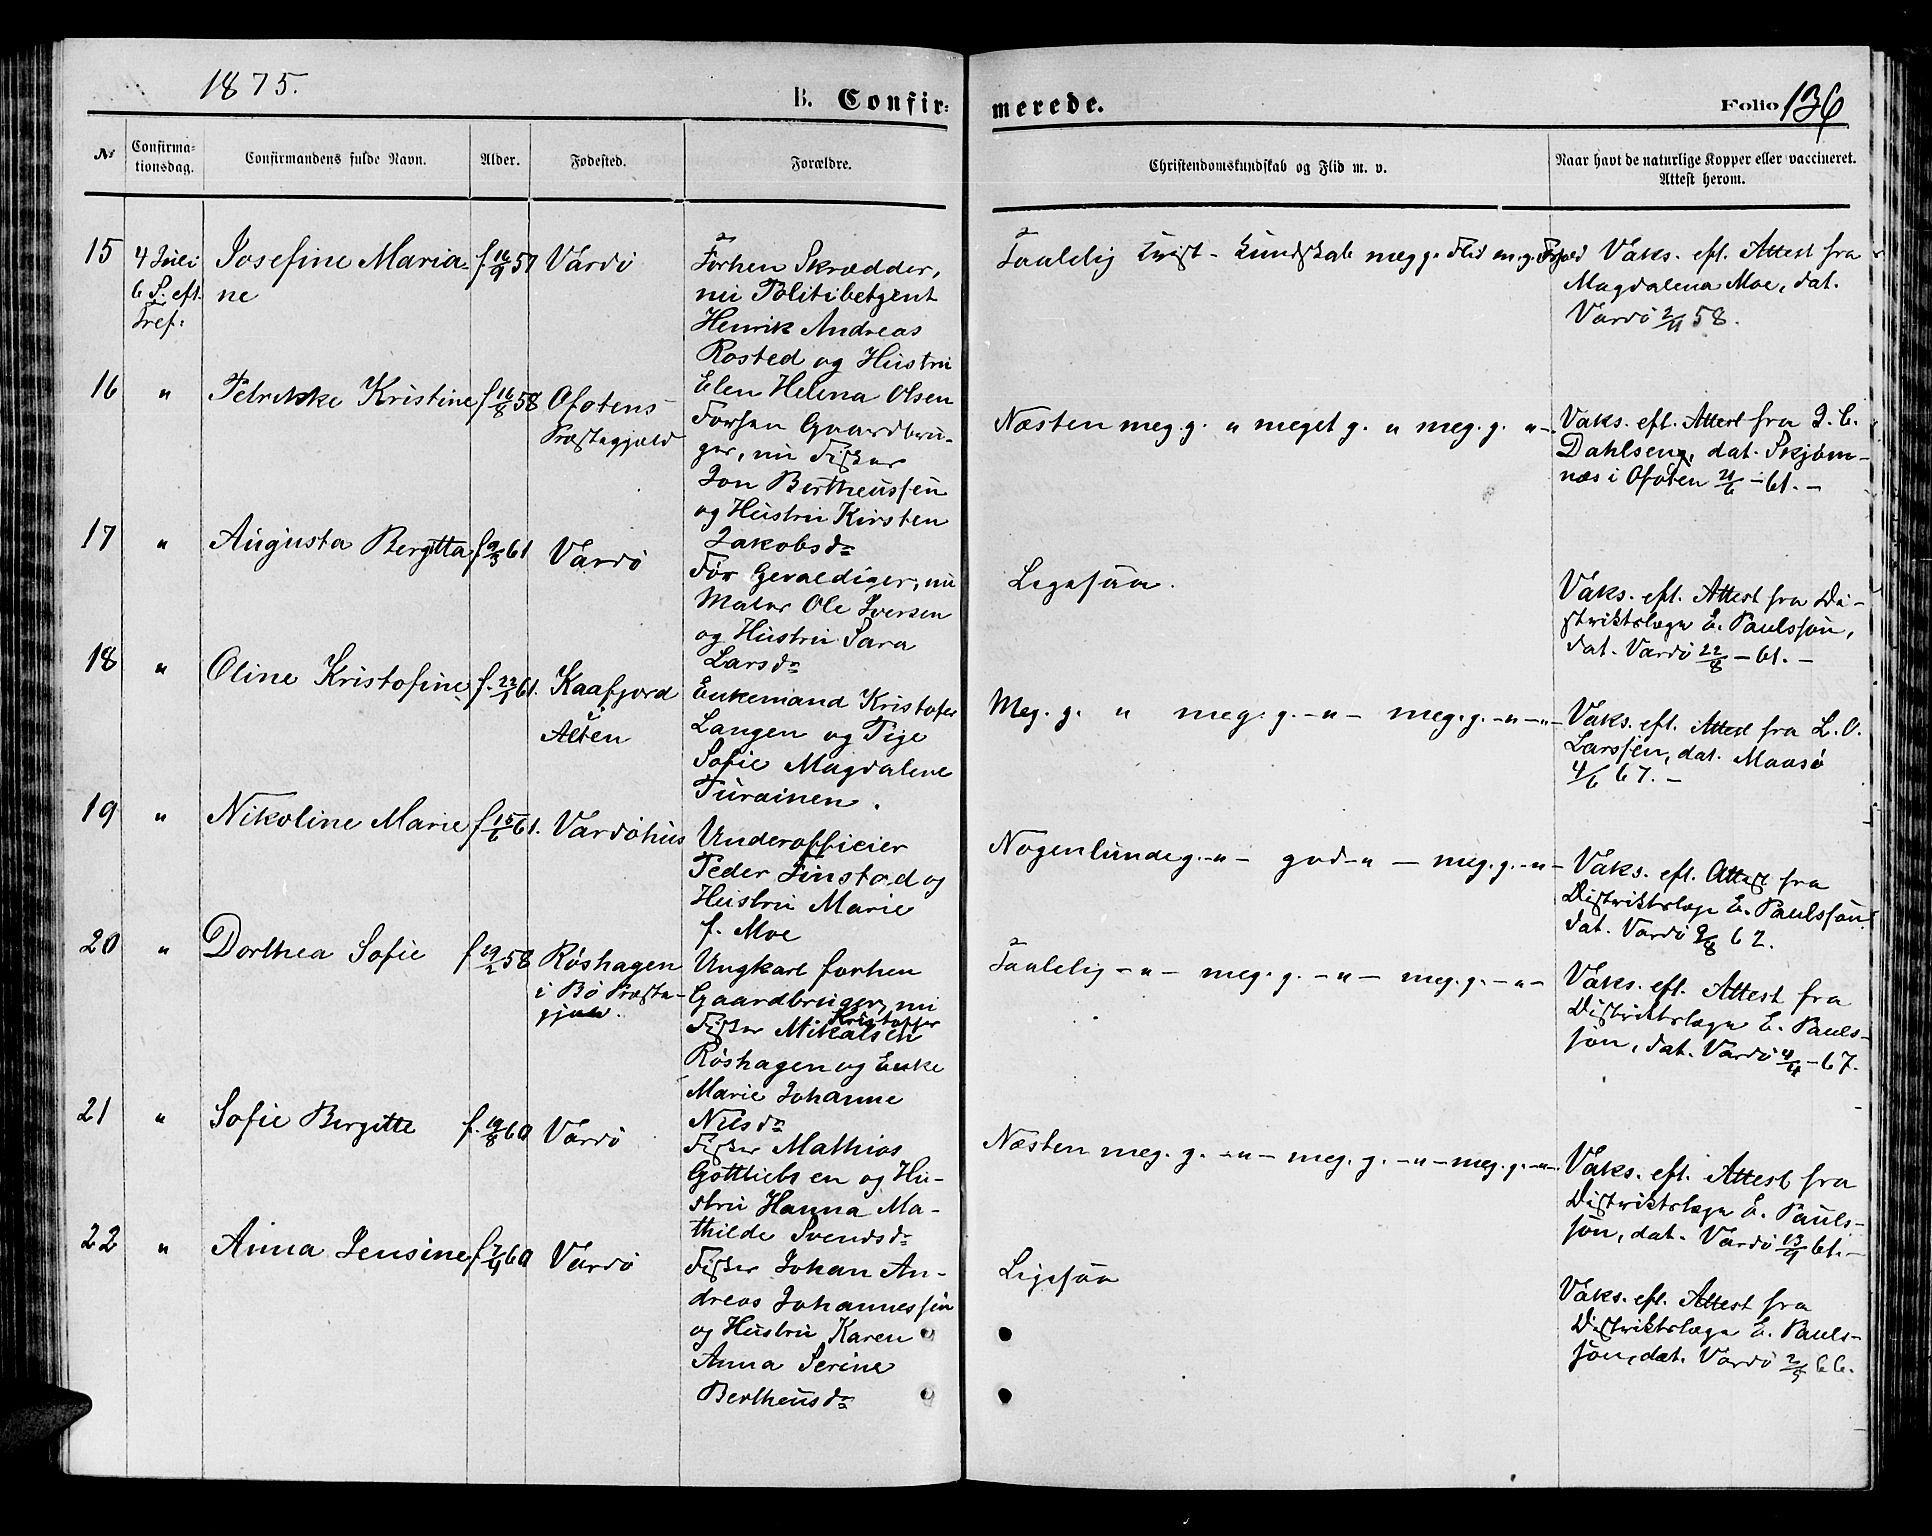 1875.
B. Confir-
merede.
Folio 136
No
Confirma-
tionsdag.
Confirmandens fulde Navn.
Alder.
Fødested.
Forældre.
Christendomskundskab og Flid m. v.
Naar havt de naturlige Kopper eller vaccineret.
Attest herom.
15
4 Juli
6 S. eft.
Tref:
Josefine Maria-
ne
f. 16/9 57
Vardö
Forhen Skrædder,
nu Politibetjent
Henrik Andreas
Rosted og Hustru
Elen Helena Olsen
Taalelig Krist. Kundskab meg g. Flid m. g. Forhold
Vaks. eft. Attest fra
Magdalena Moe, dat.
Vardö 2/11 58.
16
"
Petrikke Kristine
f. 16/8 58
Ofotens
Præstegjæld
Forhen Gaardbru-
ger, nu Fisker
Jon Bertheussen
og Hustru Kirsten
Jakobsdr
Næsten meg. g. " meget g. " meg. g. "-
Vaks. eft. Attest fra J. C.
Dahlseng, dat. Skjom-
næs i Ofoten 21/6 - 61. -
17
"
Augusta Bergitta
f. 9/3 61
Vardö
Før Gevaldiger, nu
Maler Ole Iversen
og Hustru Sara
Larsdr
Ligesaa.
Vaks. eft. Attest fra Di-
striktslæge E. Paulsson,
dat. Vardö 22/8 - 61. -
18
"
Oline Kristofine
f. 22/1 61.
Kaafjord
i
Alten
Enkemand Kristofer
Langen og Pige
Sofie Magdalene
Turainen.
Meg. g. " meg. g. -"- meg. g. -"-"-
Vaks. eft. Attest fra L. O.
Larssen, dat. Maasö
4/6 67. -
19
"
Nikoline Marie
f. 15/6 61.
Vardöhus
Underofficier
Peder Finstad og
Hustru Marie
f. Moe
Nogenlunde g. -"- god -"- meg. g. -"-
Vaks. eft. Attest fra
Distriktslæge E. Paulsson
dat. Vardö 9/8 62.
20
"
Dorthea Sofie
f. 19/2 58
Røshagen
i Bø Præste-
gjæld.
Ungkarl forhen
Gaardbruger, nu
Fisker Kristoffer Mikalsen
Røshagen og Enke
Marie Johanne
Nilsdr
Taalelig -"- meg. g. -"- meg. g. -"-
Vaks. eft. Attest fra
Distriktslæge E. Pauls-
son, dat. Vardö 4/4 - 67.
21
"
Sofie Bergitte
f. 19/8 60
Vardö
Fisker Mathias
Gottliebsen og Hu-
stru Hanna Ma-
thilde Svendsdr
Næsten meg. g. -"- meg. g. -"- meg. g. -"-
Vaks. eft. Attest fra
Distriktslæge E. Pauls-
son, dat. Vardö 13/9 61. -
22
"
Anna Jensine
f. 7/4 60
Vardö
Fisker Johan An-
dreas Johannessen
og Hustru Karen
Anna Serine
Bertheusdr
Ligesaa
Vaks. eft. Attest fra
Distriktslæge E. Pauls-
son, dat. Vardö 2/5 66.